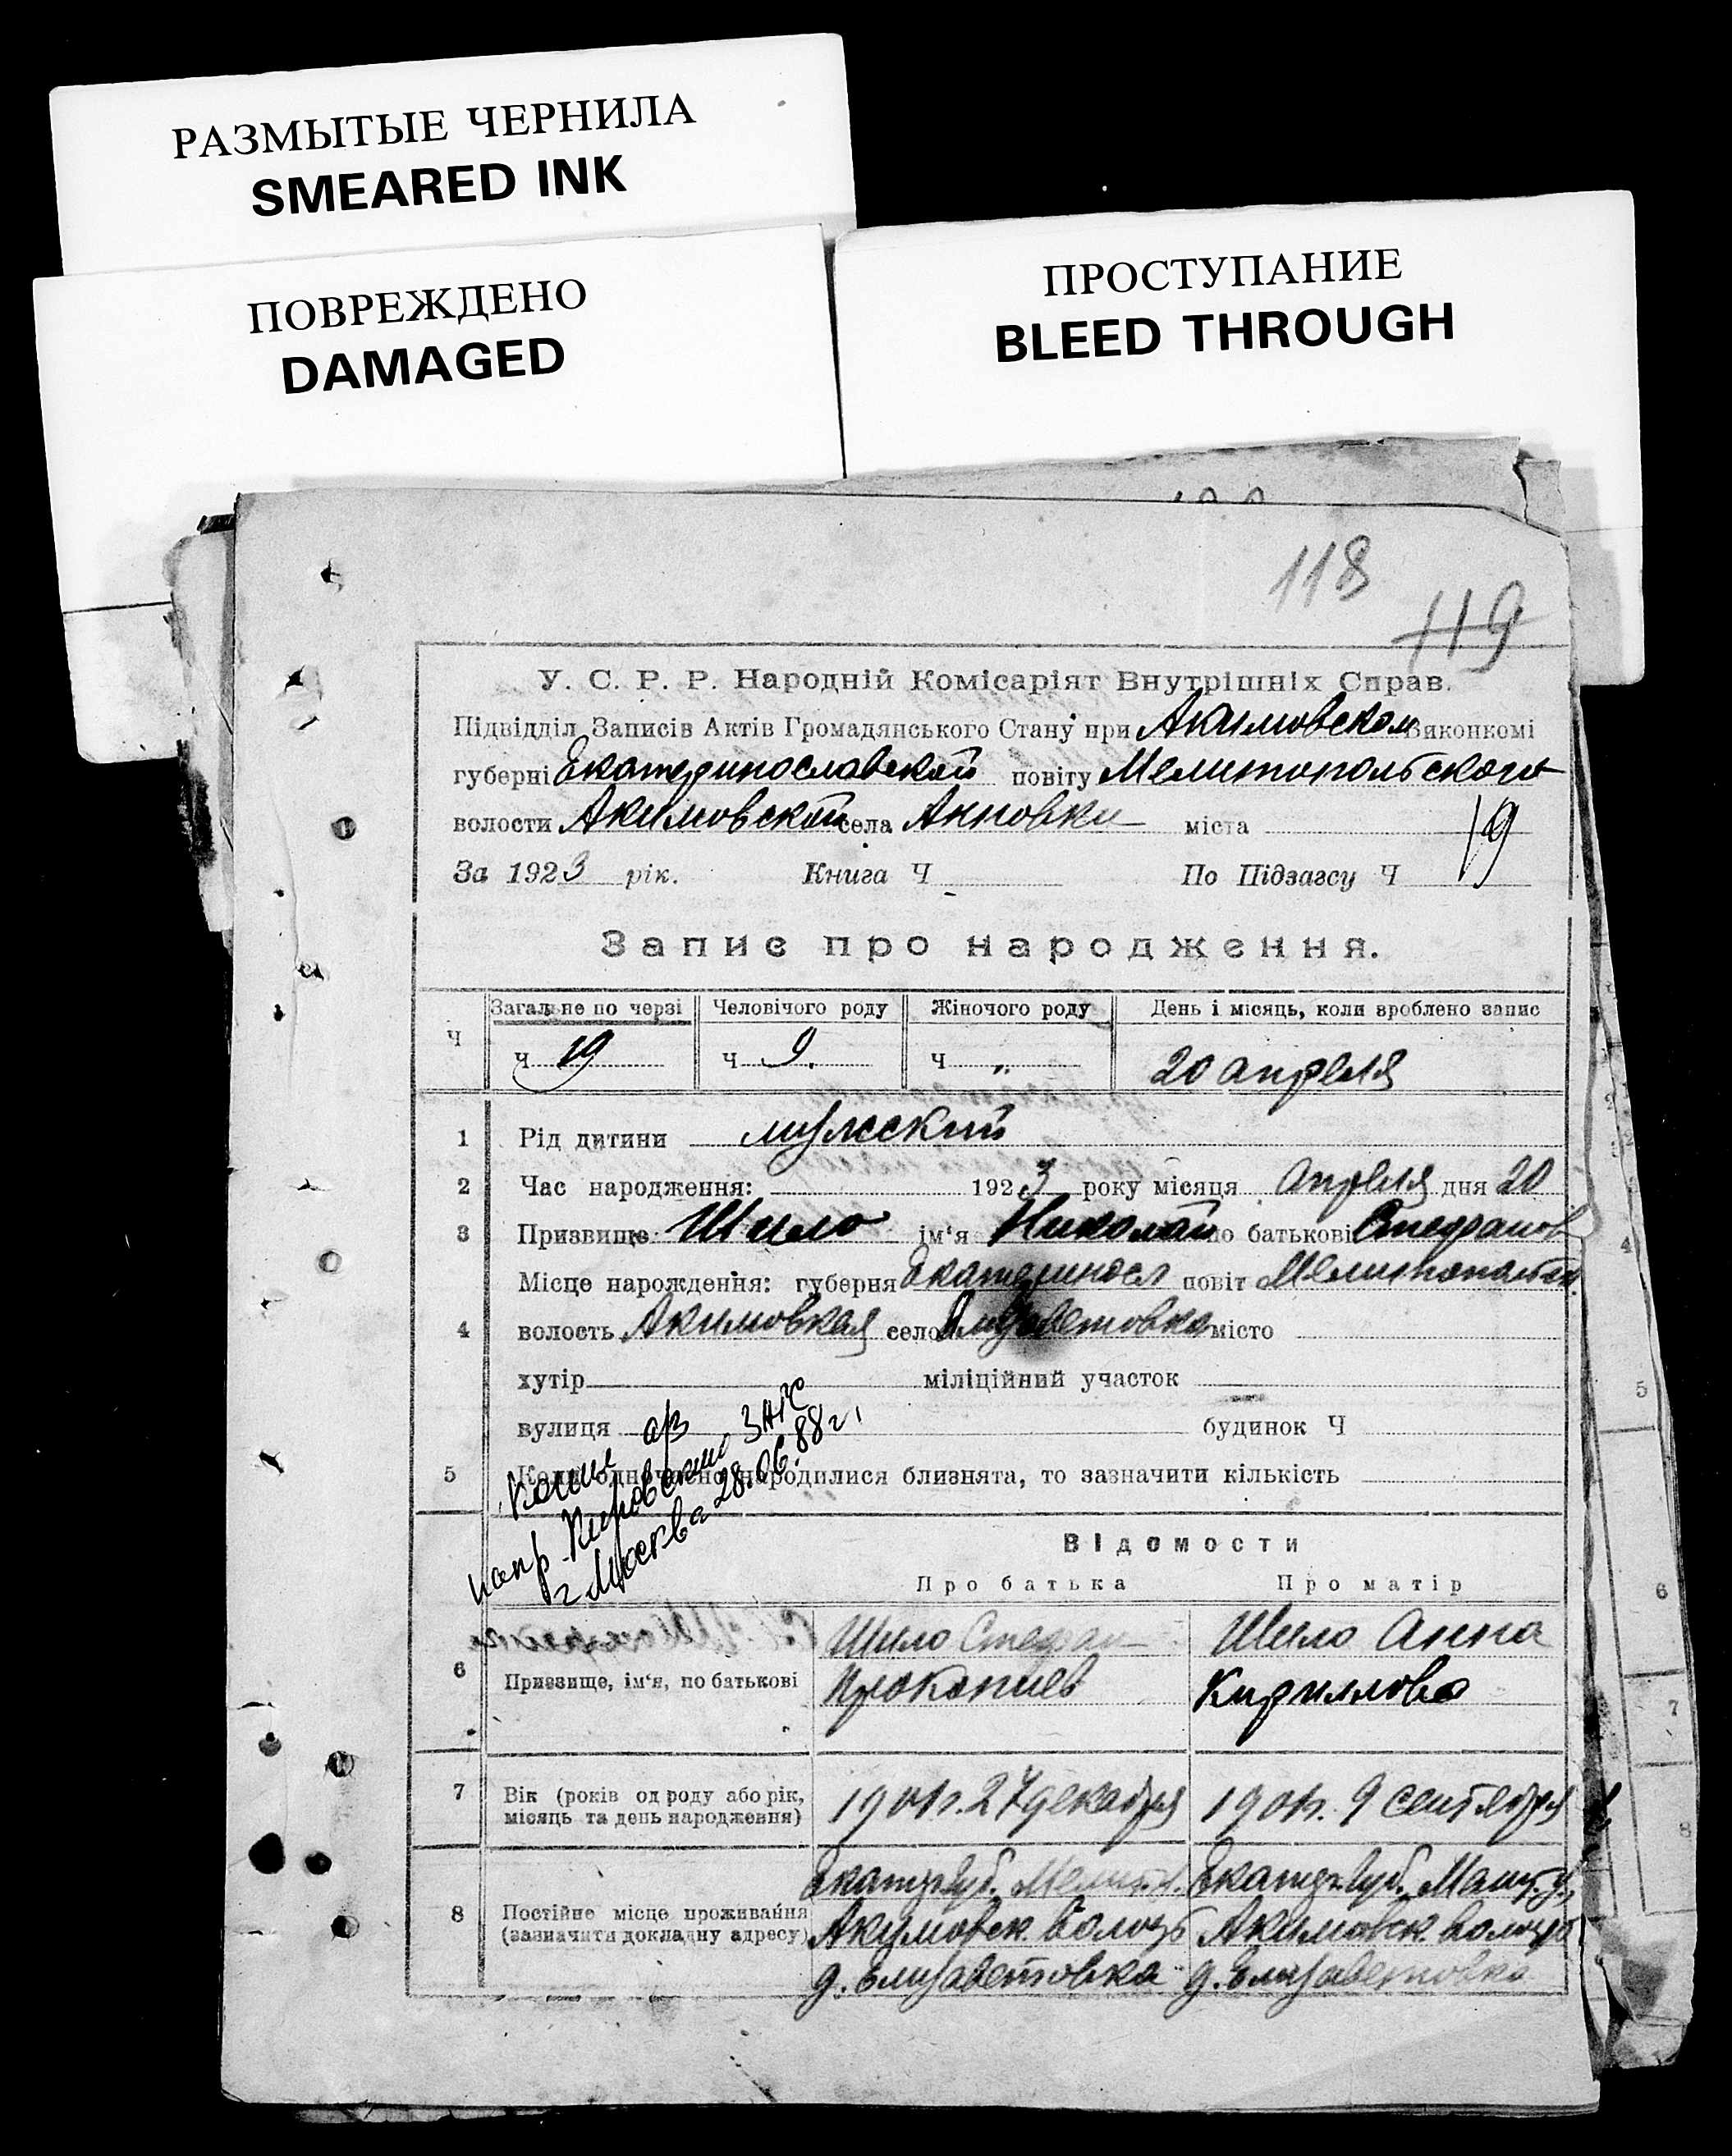 РАЗМЫТЫЕ ЧЕРНИЛА
SMEARED INK
ПОВРЕЖДЕНО
DAMAGED
ПРОСТУПАНИЕ
BLEED THROUGH
118
119
У. С. Р. Р. Народній Комісаріят Внутрішніх Справ.
Підвідділ Записів Актів Громадянського Стану при Акимовском Виконкомі
губерні Екатеринославской повіту Мелитопольского
волости Акимовской села Анновки міста
За 1923 рік. Книга Ч По Підзагсу Ч 19
Запис про народження.
Ч Загальне по черзі Человічого роду Жіночого роду День і місяць, коли зроблено запис
Ч 19 Ч 9. Ч „ 20 апреля
1 Рід дитини мужеский
2 Час народження: 1923 року місяця Апреля дня 20
3 Призвище Шило ім‘я Николай по батькові Стефанов
Місце нарождення: губерня Екатериносл повіт Мелитопольск
4 волость Акимовская село Елизаветовка місто
хутір міліційний участок
вулиця будинок Ч
5 народилися близнята, то зазначити кількість
Копия а/з
напр. Кировским ЗАГС
г. Москва 28.06.88 г.
Відомости
Про батька Про матір
6 Призвище, ім‘я, по батькові
Шило Стефан
Прокопиев
Шило Анна
Кириллова
7 Вік (років од роду або рік,
місяць та день народження)
1901г. 27 декабря
1901г. 9 сентября
8 Постійне місце проживання
(зазначити докладну адресу)
Екатер. губ. Мелит. у.
Акимовск. волость
д. Елизаветовка
Екатер. губ. Мелит. у.
Акимовск. волость
д. Елизаветовка
4
5
6
7
8